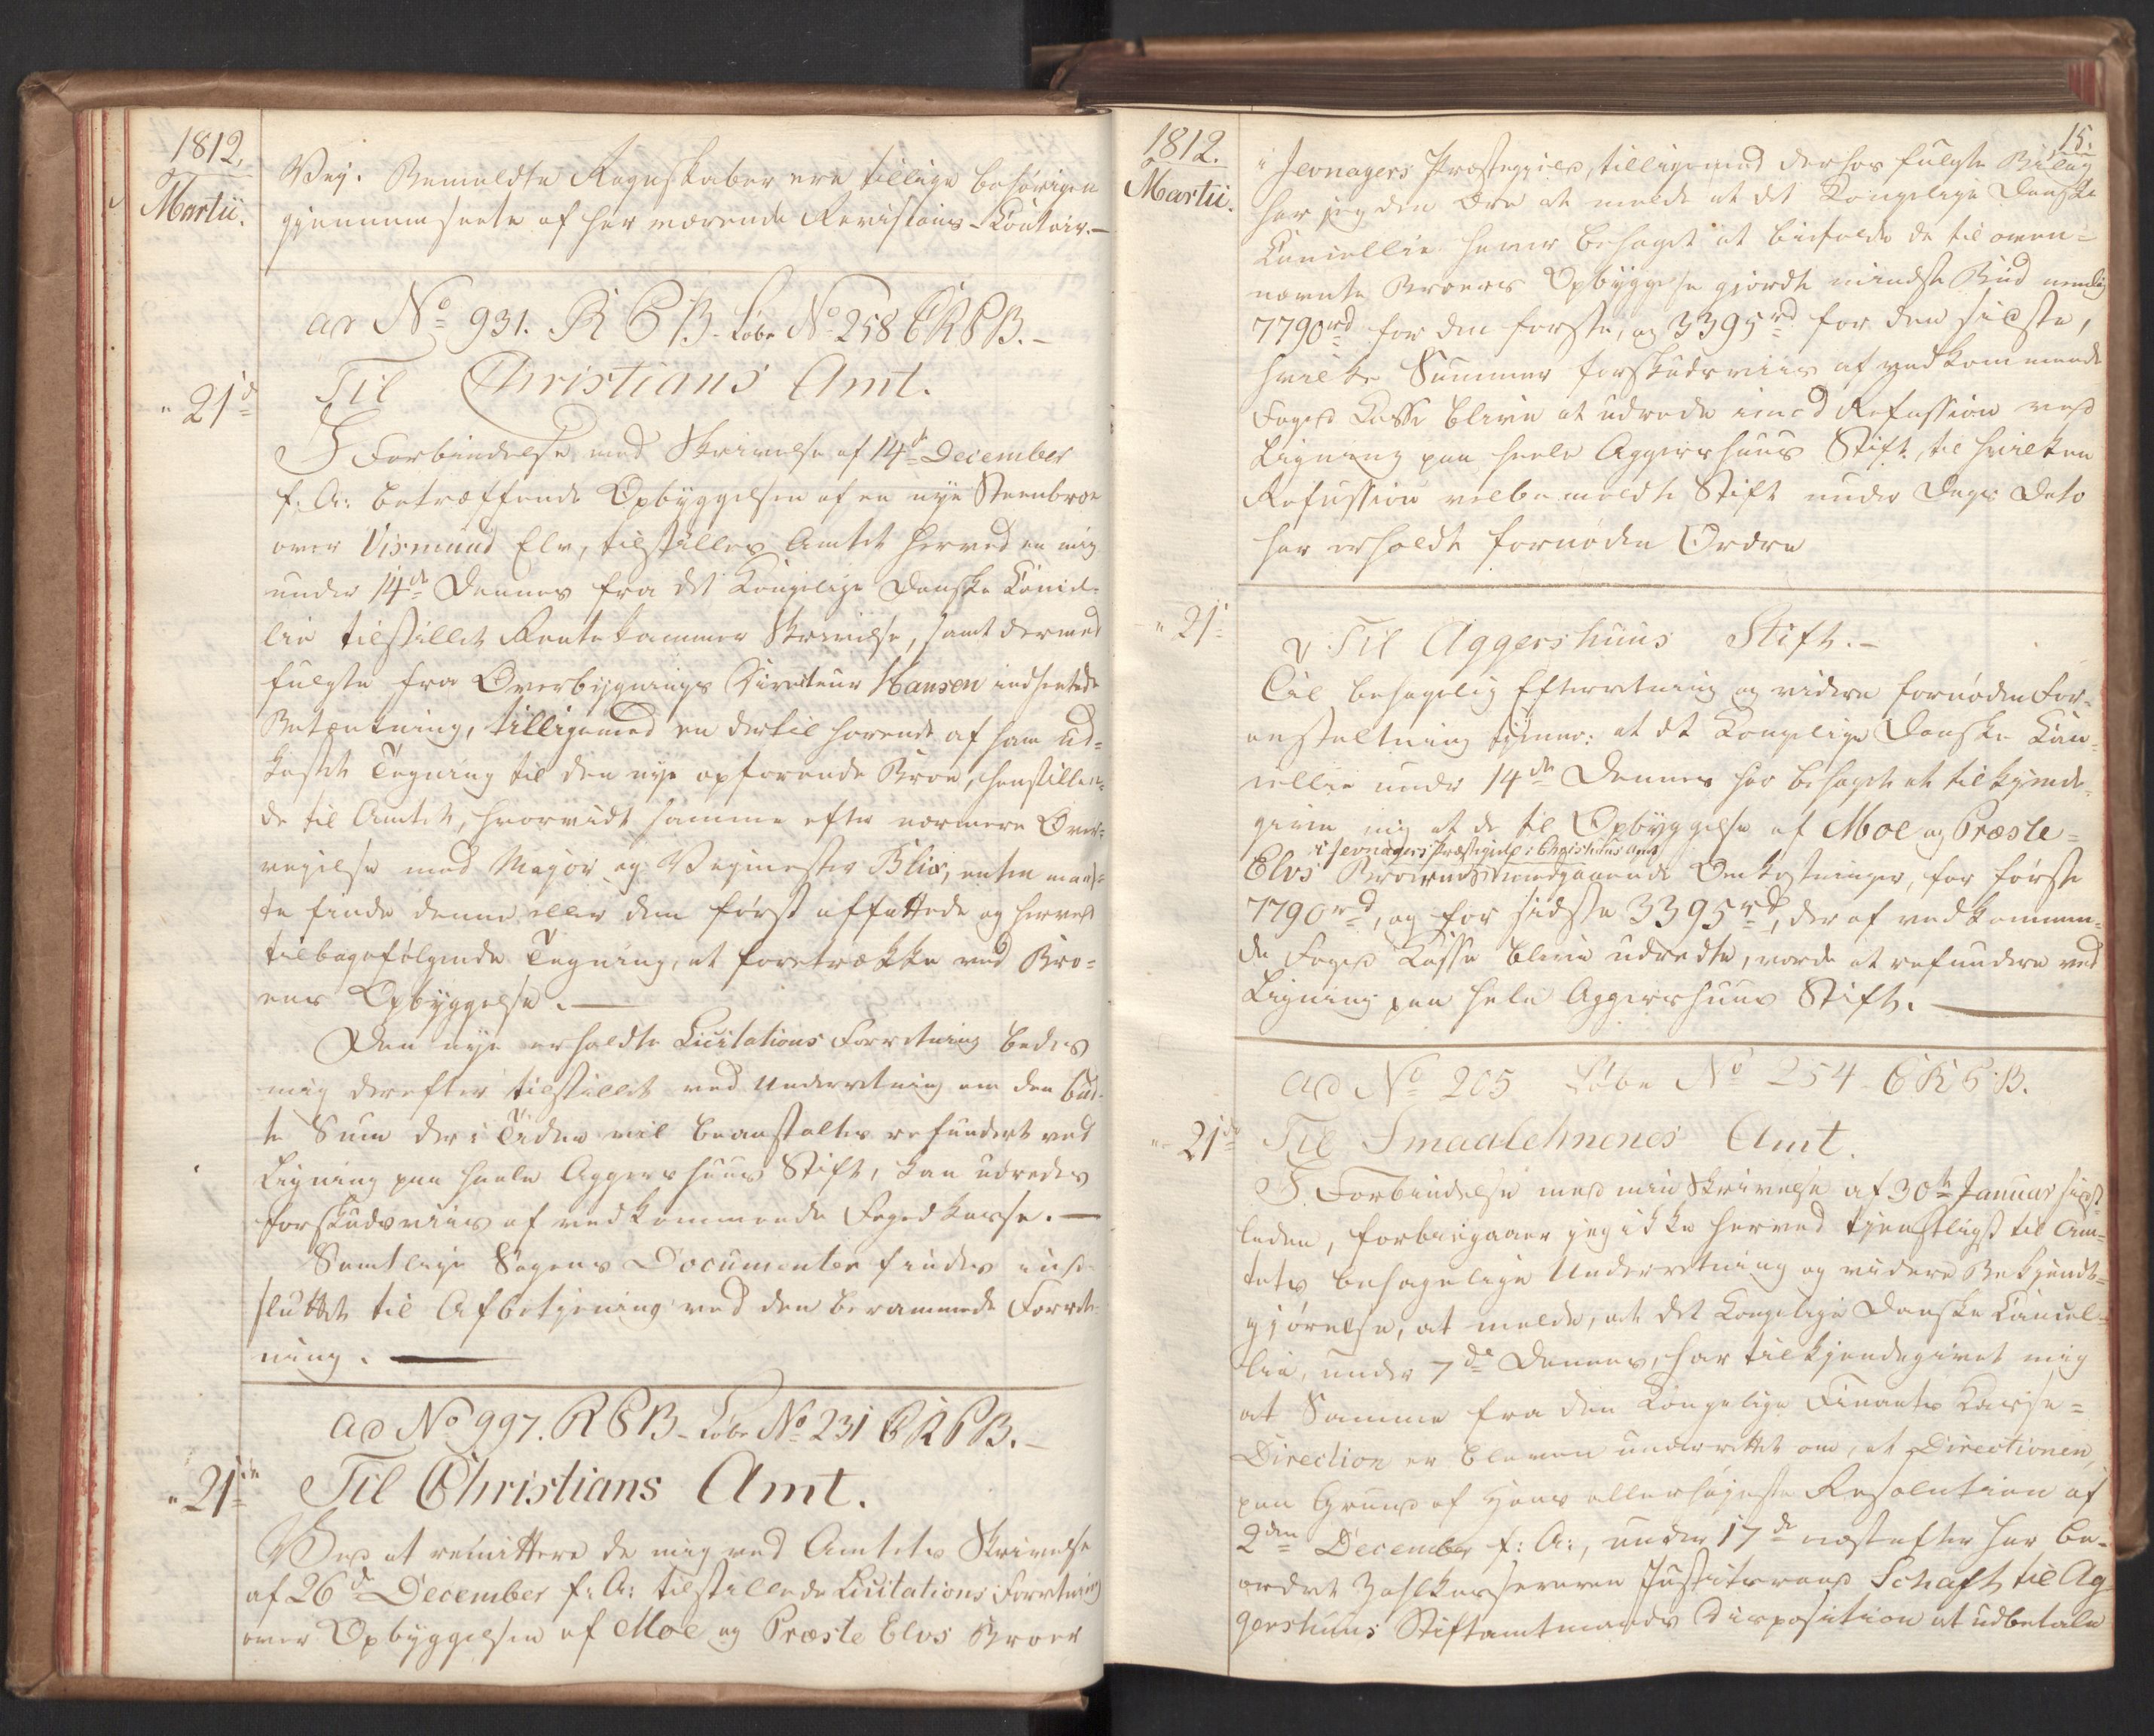 1812.
Martii.
Vej. Bemeldte Regnskaber ere tillige behørigen
gjennemseete af her værende Revisions-Contoir.—
ad No 931. R C B. Løbe No 258 C K P B.—
" 21de
Til Christians Amt.
I Forbindelse med Skrivelse af 14de December
f: A: betræffende Opbyggelsen af en nye Steenbroe
over Vismund Elv, tilstilles Amtet herved en mig
under 14de Dennes fra det Kongelige Danske Cancel-
lie tilstillet Rentekammer Skrivelse, samt dermed
fulgte fra Overbygnings Directeur Hansen indhentede
Betænkning, tilligemed en dertil hørende af ham ud-
kastet Tegning til den nye opførende Broe, henstillen-
de til Amtet, hvorvidt samme efter nærmere Over-
vejelse med Major og Vejmester Blix, enten maat-
te finde denne eller den først affattede og herved
tilbagefølgende Tegning, at foretrække ved Bro-
ens Opbyggelse.—
Den nye erholdte Licitations Forretning bedes
mig derefter tilstillet ved Underretning om den bud-
te Sum der i Tiden vil beanstaltes refunderet ved
Ligning paa heele Aggershuus Stift, kan udredes
forskudsviis af vedkommende Foged Kasse.—
Samtlige Sagens Documenter findes ind-
sluttet til Afbetjening ved den berammede Forret-
ning.—
ad No 997. R C B. Løbe No 231 C K P B.—
" 21de
Til Christians Amt.
Ved at remittere de mig ved Amtets Skrivelse
af 26de December f: A: tilstillede Licitations Forretning
over Opbyggelsen af Moe og Præste Elvs Broer
15.
1812.
Martii.
i Jevnagers Præstegjeld, tilligemed derhos fulgte Bilag
har jeg den Ære at melde at det Kongelige Danske
Cancellie haver behaget at bifalde de til oven-
nævnte Broers Opbyggelse gjordte mindste Bud nemlig
7790rd for den første, og 3395rd for den sidste,
hvilke Summer forskudsviis af vedkommende
Foged Casse blive at udrede imod Refussion ved
Ligning paa heele Aggershuus Stift, til hvilken
Refussion velbemeldte Stift under Dags Dato
har erholdt fornøden Ordre
" 21.
Til Aggershuus Stift.—
Til behagelig Efterretning og videre fornøden For-
anstaltning tjener: at det Kongelige Danske Can-
cellie under 14de Dennes har behaget at tilkjende-
give mig at de til Opbyggelse af Moe og Præste-
i Jevnagers Præstegield i Christians Amt
Elvs Broer medgaaende Omkostninger, for første
7790rd, og for sidste 3395rd, der af vedkommen-
de Foged Kasse blive udredte, vorde at refundere ved
Ligning paa hele Aggershuus Stift.—
ad No 205 Løbe No 254 C K P B.
" 21de
Til Smaalehnenes Amt.
I Forbindelse med min Skrivelse af 30te Januar sidst-
leden, forbiegaaer jeg ikke herved tjenstligst til Am-
tets behagelige Underretning og videre Bekjendt-
gjørelse, at melde, at det Kongelige Danske Cancel-
lie, under 7de Dennes, har tilkjendegivet mig
at Samme fra den Kongelige Finants Casse-
Direction er bleven underrettet om, at Directionen,
paa Grund af Hans allerhøjeste Resolution af
2den December f: A:, under 17de næstefter har be-
ordret Zahlkasserern Justitsraad Schaft til Ag-
gershuus Stiftamtmands Disposition at udbetale